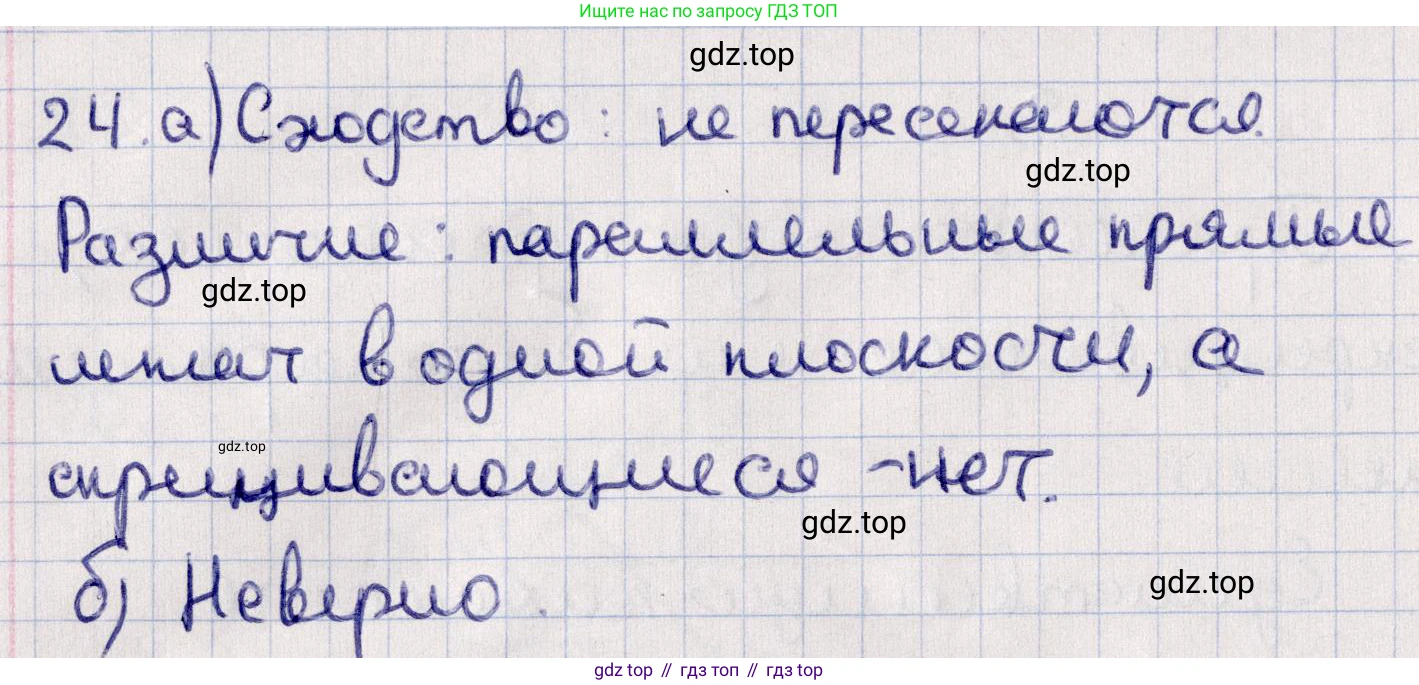 Ищите нас по запросу ГДЗ ТОП
gdz.top
24. а) Сходство: не пересекаются.
gdz.top
Различие: параллельные прямые
gdz.top
лежат в одной плоскости, а
gdz.top
скрещивающиеся - нет.
gdz.top
gdz.top
б) Неверно.
gdz top // гдз топ // gdz top